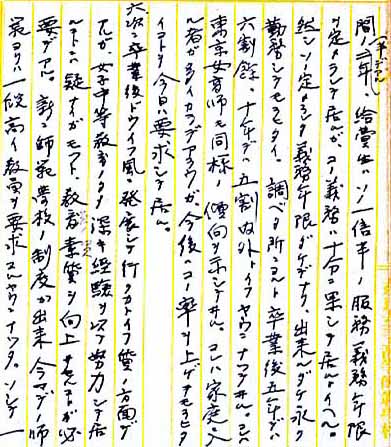 間ノ二年、給費生ハソノ一倍半ノ服務義務年限
ヲ定メラレテ居ルガ、コノ義務ハ十分ニ果シテ居ルトイヘル。
然シソノ定メラレタ義務年限ダケデナク、出来ルダケ永ク
勤務シテモラヒタイ。調ベタ所ニヨルト卒業後五年デハ
六割餘、十年デハ五割内外トイフヤウニナツテヰル。コレハ
東京女高師モ同様ノ傾向ヲ示シテヰル。コレハ家庭ニ入
ル者ガ多イカラデアラウガ今後ハコノ率ヲ上ゲテモラヒタ
イコトヲ今日ハ要求シテ居ル。
六、次ニ卒業後ドウイフ風ニ発展シテ行クカトイフ質ノ方面デ
アルガ、女子中等教育ノタメ深キ経験ヲ以テ努力シテ居
ルコトハ疑ナイガモツト教育素質ヲ向上サセルコトガ必
要デアル。新シイ師範学校ノ制度ガ出来、今マデノ師
範ヨリハ一段高イ教育ヲ要求スルヤウニナツタ。ソシテ一